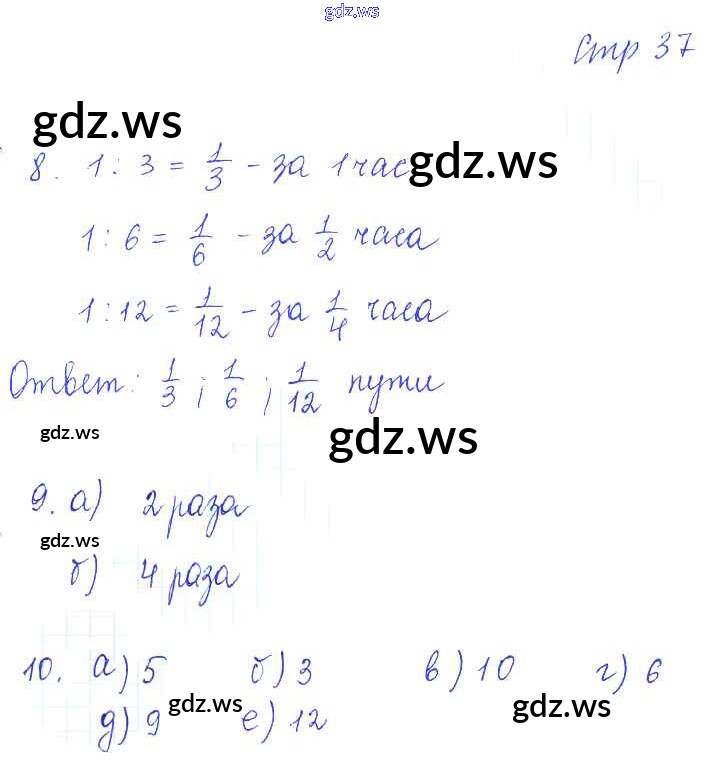 gdz.ws
Стр 37
gdz.ws
8. 1 : 3 = 1/3 - за 1 час gdz.ws
1 : 6 = 1/6 - за 1/2 часа
1 : 12 = 1/12 - за 1/4 часа
Ответ: 1/3 ; 1/6 ; 1/12 пути
gdz.ws gdz.ws
9. а) 2 раза
gdz.ws
б) 4 раза
10. а) 5 б) 3 в) 10 г) 6
д) 9 gdz.ws е) 12 gdz.ws